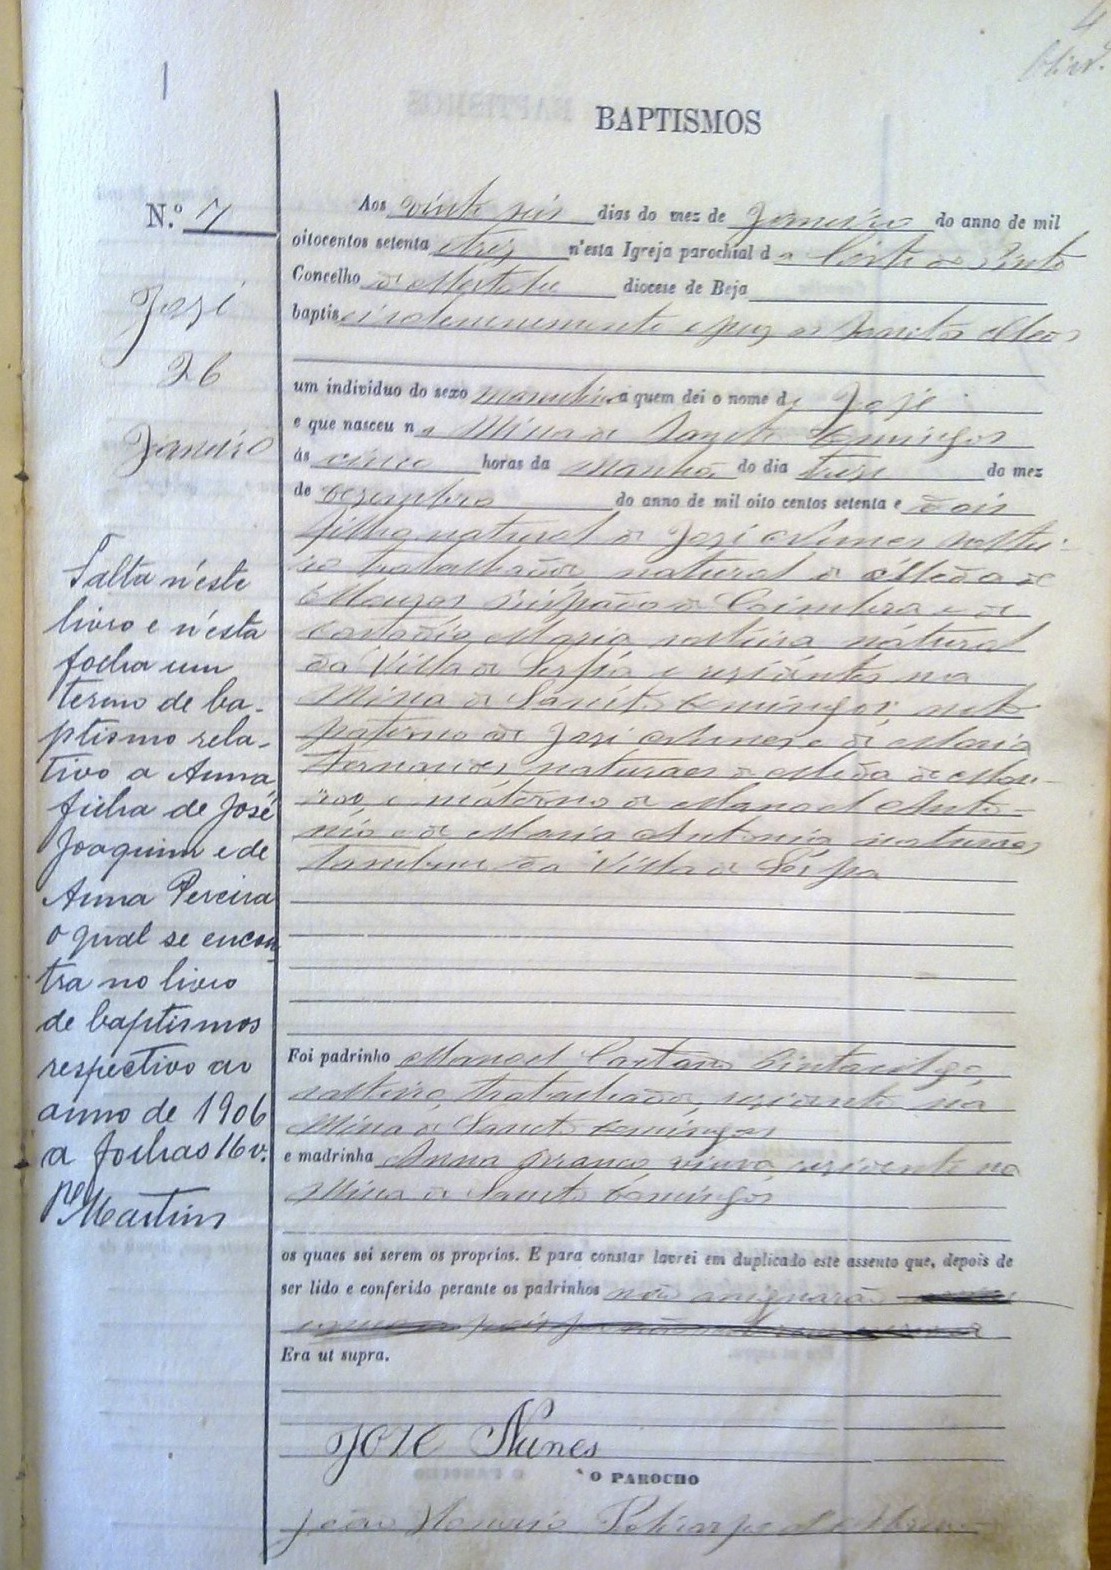 4
BAPTISMOS
N.º 7
José
26
Janeiro
Falta n'este
livro e n'esta
folha um
termo de ba-
ptismo rela-
tivo a Anna,
filha de José
Joaquim e de
Anna Pereira
o qual se encon-
tra no livro
de baptismos
respectivo ao
anno de 1906
a folhas 16 v.
Pe Martins
Aos vinte seis dias do mez de Janeiro do anno de mil
oitocentos setenta e trez n'esta Igreja parochial da Corte do Pinto
Concelho de Mertola diocese de Beja
baptisei solemnemente e puz os Sanctos Oleos
um individuo do sexo masculino a quem dei o nome de José
e que nasceu na Mina de Sancto Domingos
ás cinco horas da manhã do dia treze do mez
de Dezembro do anno de mil oito centos setenta e dois
filho natural de José Nunes soltei-
ro trabalhador natural de Meda de
Mouros bispado de Coimbra e de
Maria solteira natural
da Villa de Serpa e residentes na
Mina de Sancto Domingos, neto
paterno de José Nunes e de Maria
Fernandes naturaes de Meda de Mou-
ros, e materno de Manoel Anto-
nio e de Maria Antonia naturaes
tambem da Villa de Serpa
Foi padrinho Manoel Caetano Pintasilgo
solteiro, trabalhador, residente na
Mina de Sancto Domingos
e madrinha Anna Franco viuva, residente na
Mina de Sancto Domingos
os quaes sei serem os proprios. E para constar lavrei em duplicado este assento que, depois de
ser lido e conferido perante os padrinhos não assignarão
Era ut supra.
JOSE Nunes
O PAROCHO
João